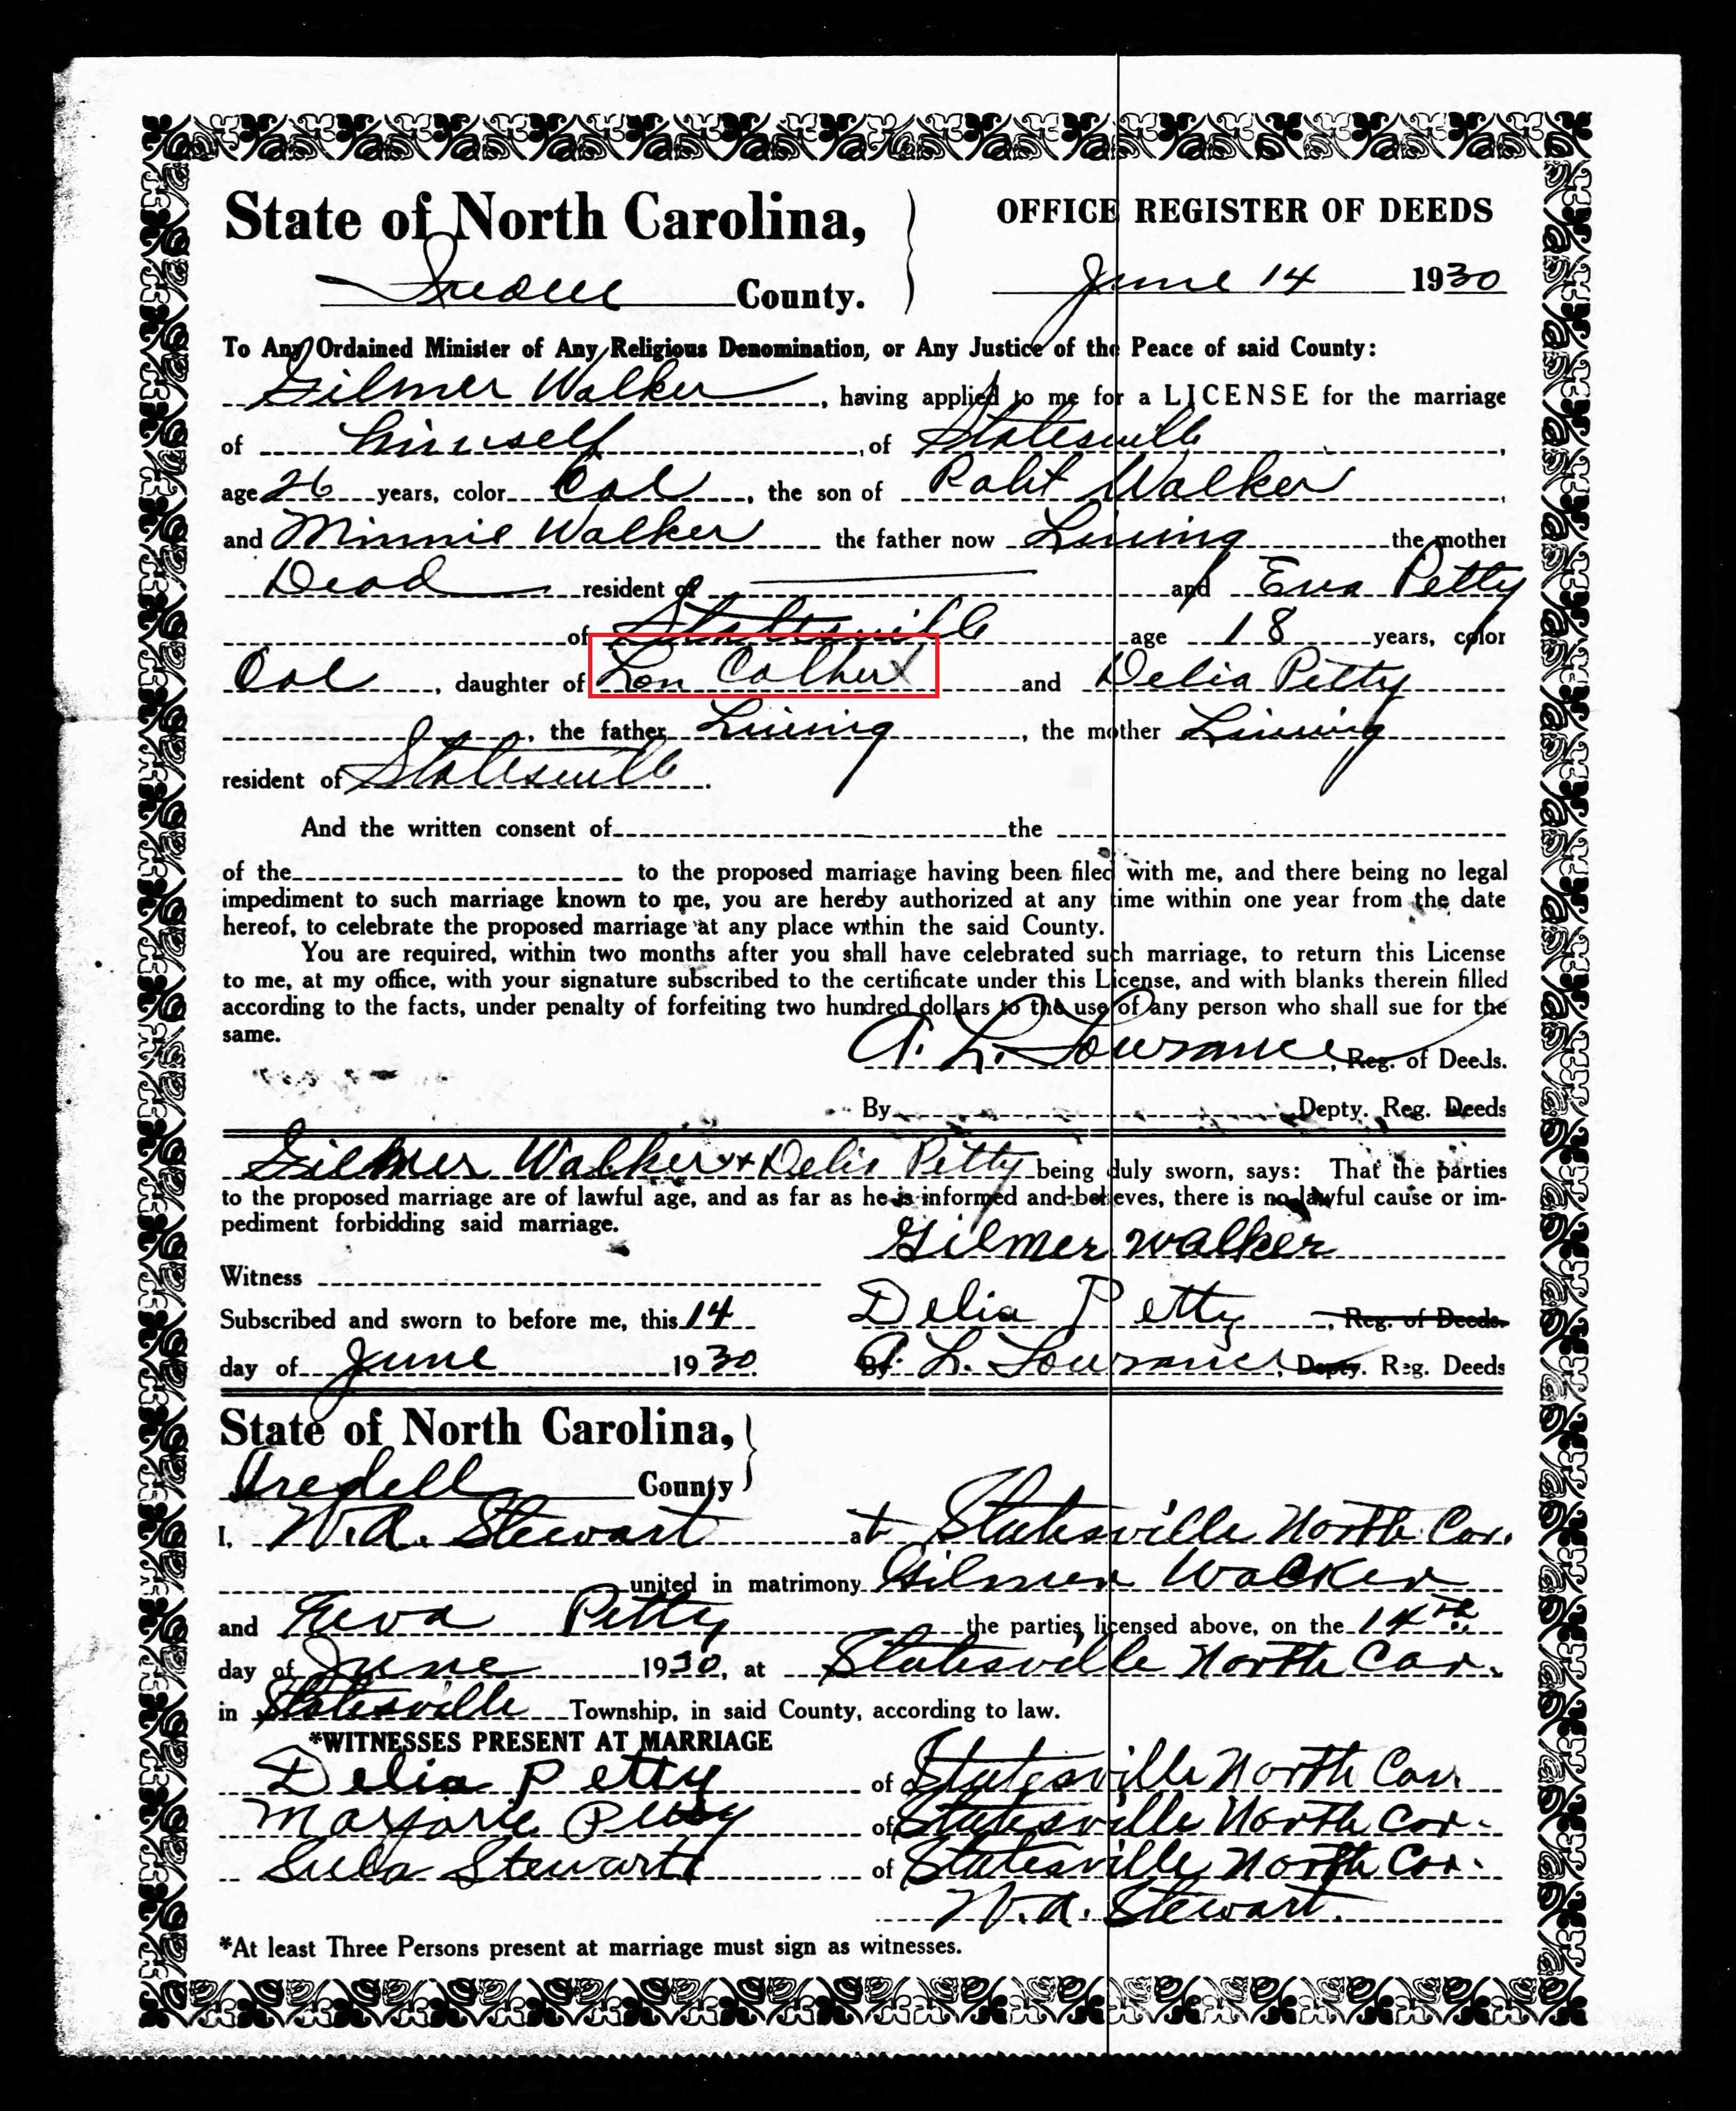 State of North Carolina,
Iredell County.
OFFICE REGISTER OF DEEDS
June 14 1930
To Any Ordained Minister of Any Religious Denomination, or Any Justice of the Peace of said County:
Gilmer Walker, having applied to me for a LICENSE for the marriage
of himself, of Statesville,
age 26 years, color Col, the son of Robt Walker,
and Minnie Walker the father now Living the mother
Dead resident of and Eva Petty
of Statesville age 18 years, color
Col, daughter of Lon and Delia Petty
, the father Living, the mother Living
resident of Statesville.
And the written consent of the
of the to the proposed marriage having been filed with me, and there being no legal
impediment to such marriage known to me, you are hereby authorized at any time within one year from the date
hereof, to celebrate the proposed marriage at any place within the said County.
You are required, within two months after you shall have celebrated such marriage, to return this License
to me, at my office, with your signature subscribed to the certificate under this License, and with blanks therein filled
according to the facts, under penalty of forfeiting two hundred dollars to the use of any person who shall sue for the
same.
A. L. Lowrance, Reg. of Deeds.
By Depty. Reg. Deeds
Gilmer Walker + Delia Petty being duly sworn, says: That the parties
to the proposed marriage are of lawful age, and as far as he is informed and believes, there is no lawful cause or im-
pediment forbidding said marriage.
Gilmer walker
Witness
Delia Petty, Reg. of Deeds.
Subscribed and sworn to before me, this 14
day of June 1930.
By A. L. Lowrance, Depty. Reg. Deeds
State of North Carolina,
Iredell County
I, W. A. Stewart at Statesville North Car.
united in matrimony Gilmer Walker
and Eva Petty the parties licensed above, on the 14th
day of June 1930, at Statesville North Car.
in Statesville Township, in said County, according to law.
*WITNESSES PRESENT AT MARRIAGE
Delia Petty of Statesville North Car.
Marjorie Petty of Statesville North Car.
Stewart of Statesville North Car.
W. A. Stewart.
*At least Three Persons present at marriage must sign as witnesses.